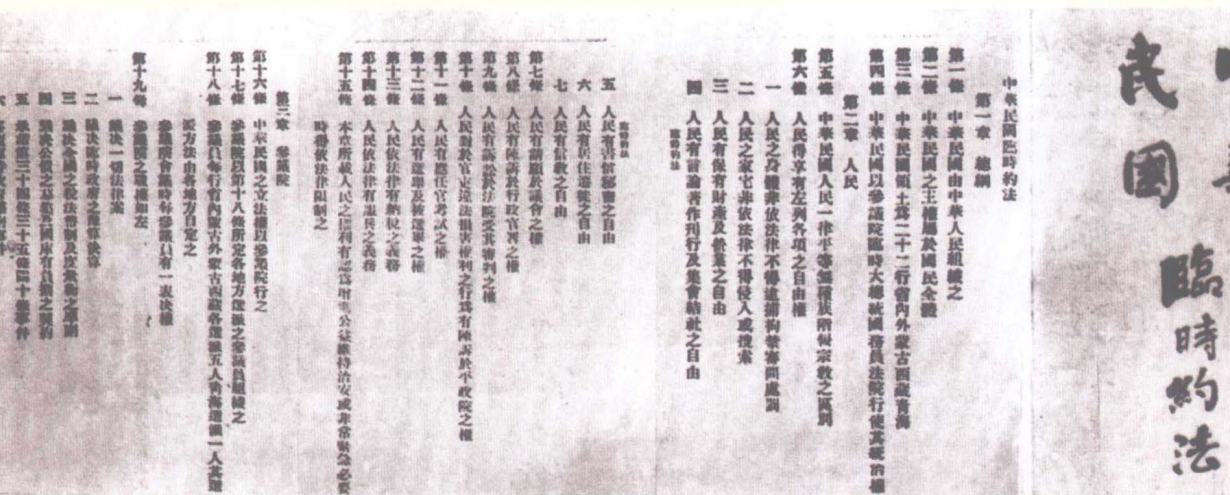 中華民國臨時約法
中華民國臨時約法
第一章 總綱
第一條 中華民國由中華人民組織之
第二條 中華民國之主權屬於國民全體
第三條 中華民國領土爲二十二行省內外蒙古西藏青海
第四條 中華民國以參議院臨時大總統國務員法院行使其統治權
第二章 人民
第五條 中華民國人民一律平等無種族階級宗教之區別
第六條 人民得享有左列各項之自由權
一 人民之身體非依法律不得逮捕拘禁審問處罰
二 人民之家宅非依法律不得侵入或搜索
三 人民有保有財產及營業之自由
四 人民有言論著作刊行及集會結社之自由
臨時約法
臨時約法
五 人民有書信秘密之自由
六 人民有居住遷徙之自由
七 人民有信教之自由
第七條 人民有請願於議會之權
第八條 人民有陳訴於行政官署之權
第九條 人民有訴訟於法院受其審判之權
第十條 人民對於官吏違法損害權利之行爲有陳訴於平政院之權
第十一條 人民有應任官考試之權
第十二條 人民有選舉及被選舉之權
第十三條 人民依法律有納稅之義務
第十四條 人民依法律有服兵之義務
第十五條 本章所載人民之權利有認爲增進公益維持治安或非常緊急必要
時得依法律限制之
第三章 參議院
第十六條 中華民國之立法權以參議院行之
第十七條 參議院以第十八條所定各地方選派之參議員組織之
第十八條 參議員每行省內蒙古外蒙古西藏各選派五人青海選派一人其選
派方法由各地方自定之
參議院會議時每參議員有一表決權
第十九條 參議院之職權如左
一 議決一切法律案
二 議決臨時政府之預算決算
三 議決全國之稅法幣制及度量衡之準則
四 議決公債之募集及國庫有負擔之契約
五 承諾第三十四條三十五條四十條事件
六